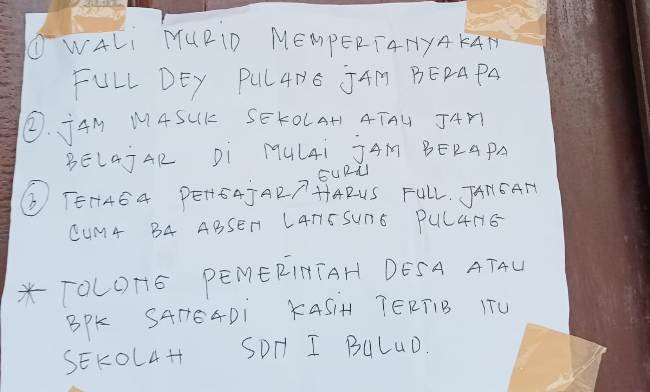 ① WALI MURID MEMPERTANYAKAN
FULL DEY PULANG JAM BERAPA
②. JAM MASUK SEKOLAH ATAU JAM
BELAJAR DI MULAI JAM BERAPA
③ TENAGA PENGAJAR/GURU HARUS FULL. JANGAN
CUMA BA ABSEN LANGSUNG PULANG
* TOLONG PEMERINTAH DESA ATAU
BPK SANGADI KASIH TERTIB ITU
SEKOLAH SDN I BULUD.